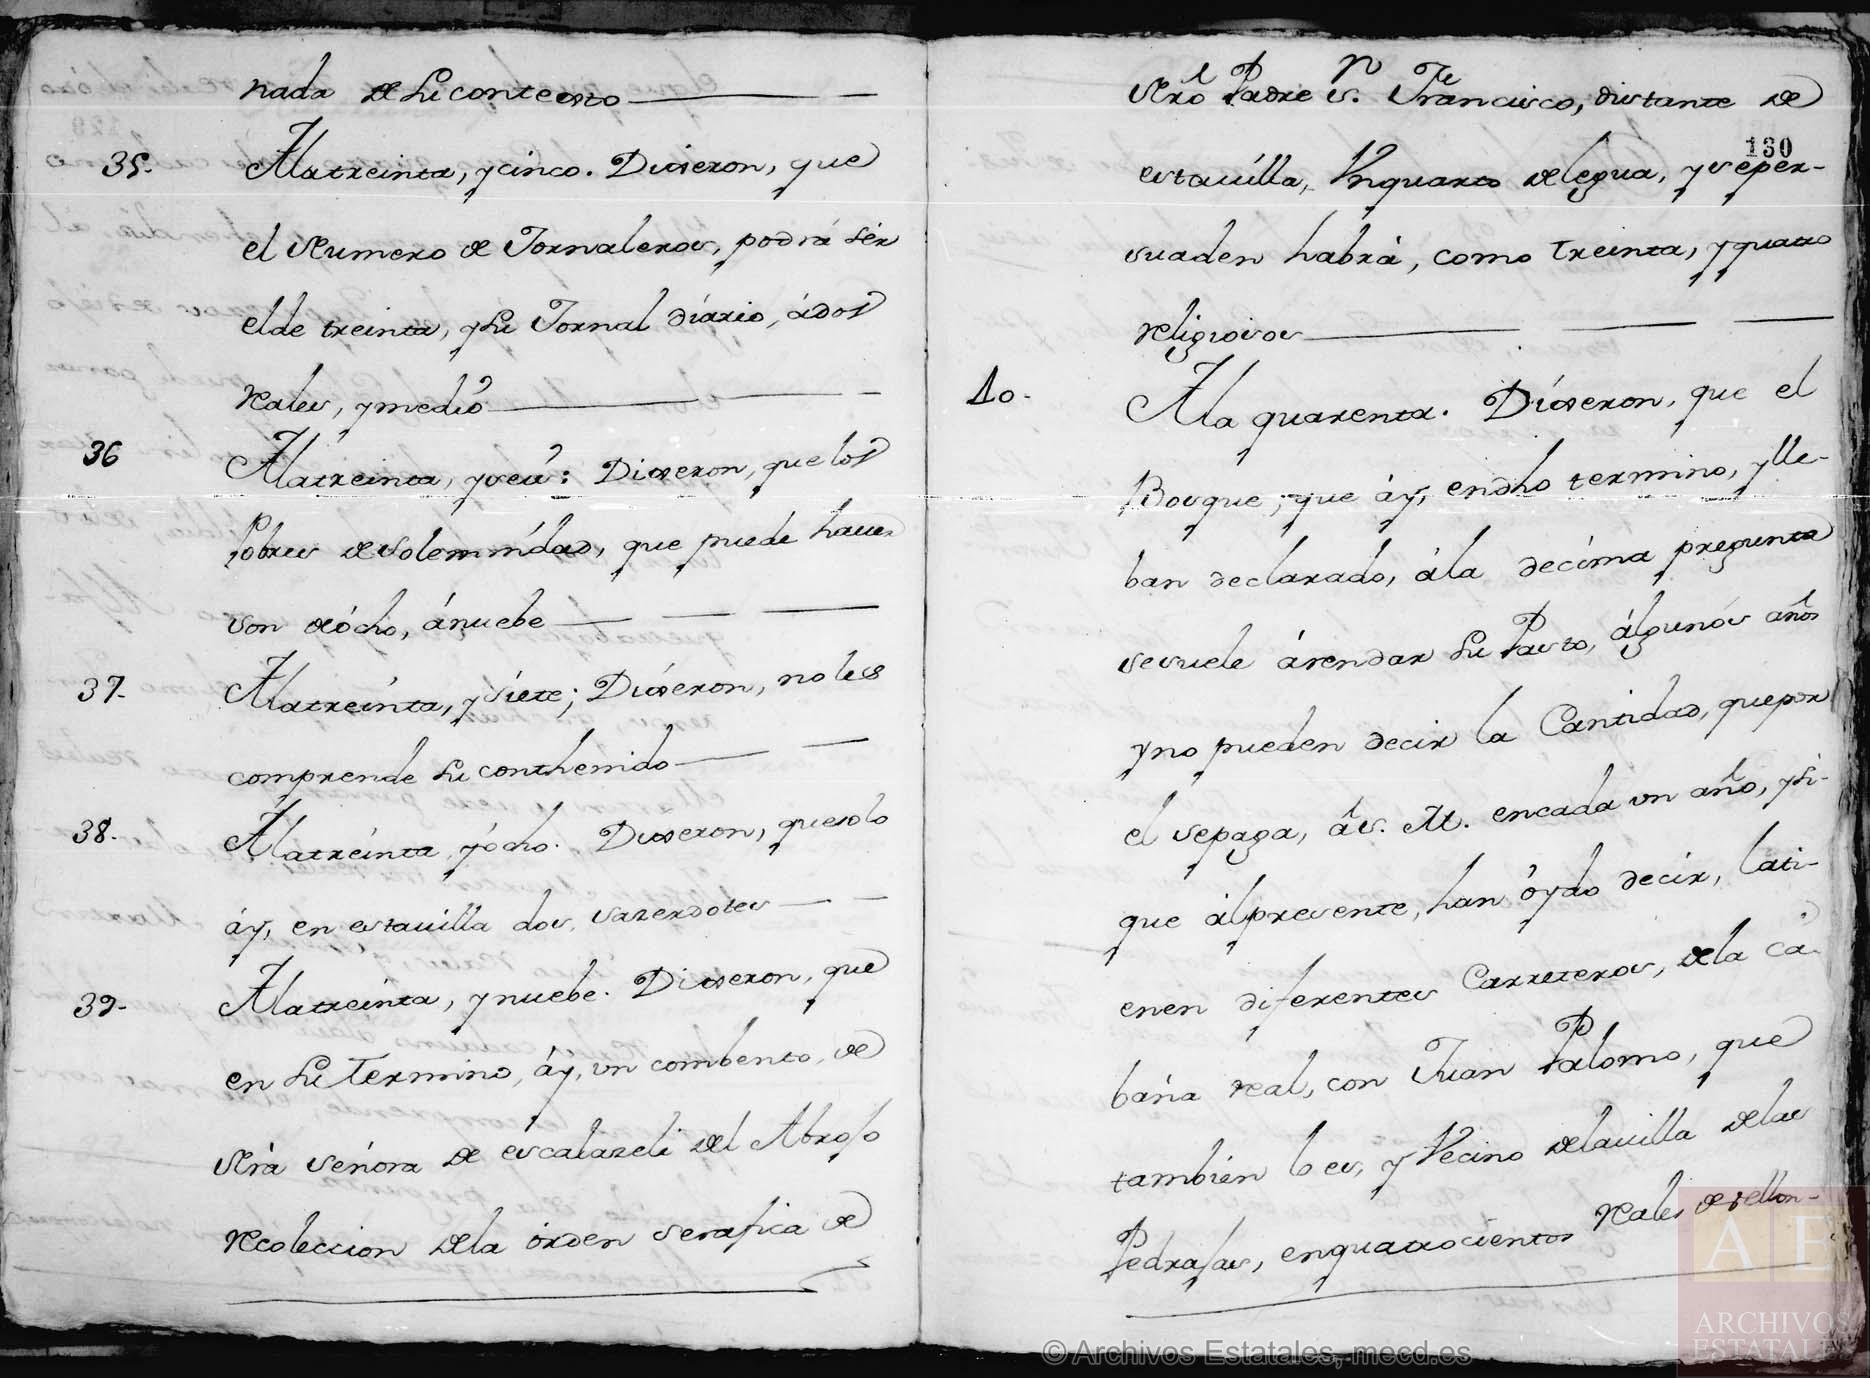 nada de su contexto
35. A la treinta, y cinco. Dixeron, que
el Numero de Jornaleros, podrá sér
el de treinta, y su Jornal diario, á dos
reales, y medio
36 A la treinta, y seis: Dixeron, que los
Pobres de solemnidad, que puede haver
son de ócho, á nuebe
37. A la treinta, y siete; Dixeron, no les
comprende su conthenido
38. A la treinta y ócho. Dixeron, que solo
áy, en esta villa dos, sazerdotes
39. A la treinta, y nuebe. Dixeron, que
en su Termino, áy, un combento, de
Nrâ señora de éscalazeli del Abrojo
recoleccion de la órden serafica de
Nrô Padre Sn. Francisco, distante de
130
esta villa, Vn quarto de legua, y se per-
suaden habrá, como treinta, y quatro
religiosos
40. A la quarenta. Dixeron, que el
Bosque, que áy, en dho termino, y lle-
ban declarado, á la decima pregunta
se suele árendar su Pasto, álgunós años
y no pueden decir la Cantidad, que por
el se paga, á S. M. en cada un año, y si-
que ál presente, han óydo decir, lati-
enen diferentes Carreteros, de la Cá-
baña real, con Juan Palomo, que
tambien lo es, y Vecino de la villa de las
Pedrajas, en quatrocientos reales de vellon-
A E
ARCHIVOS
ESTATALES
© Archivos Estatales, mecd.es